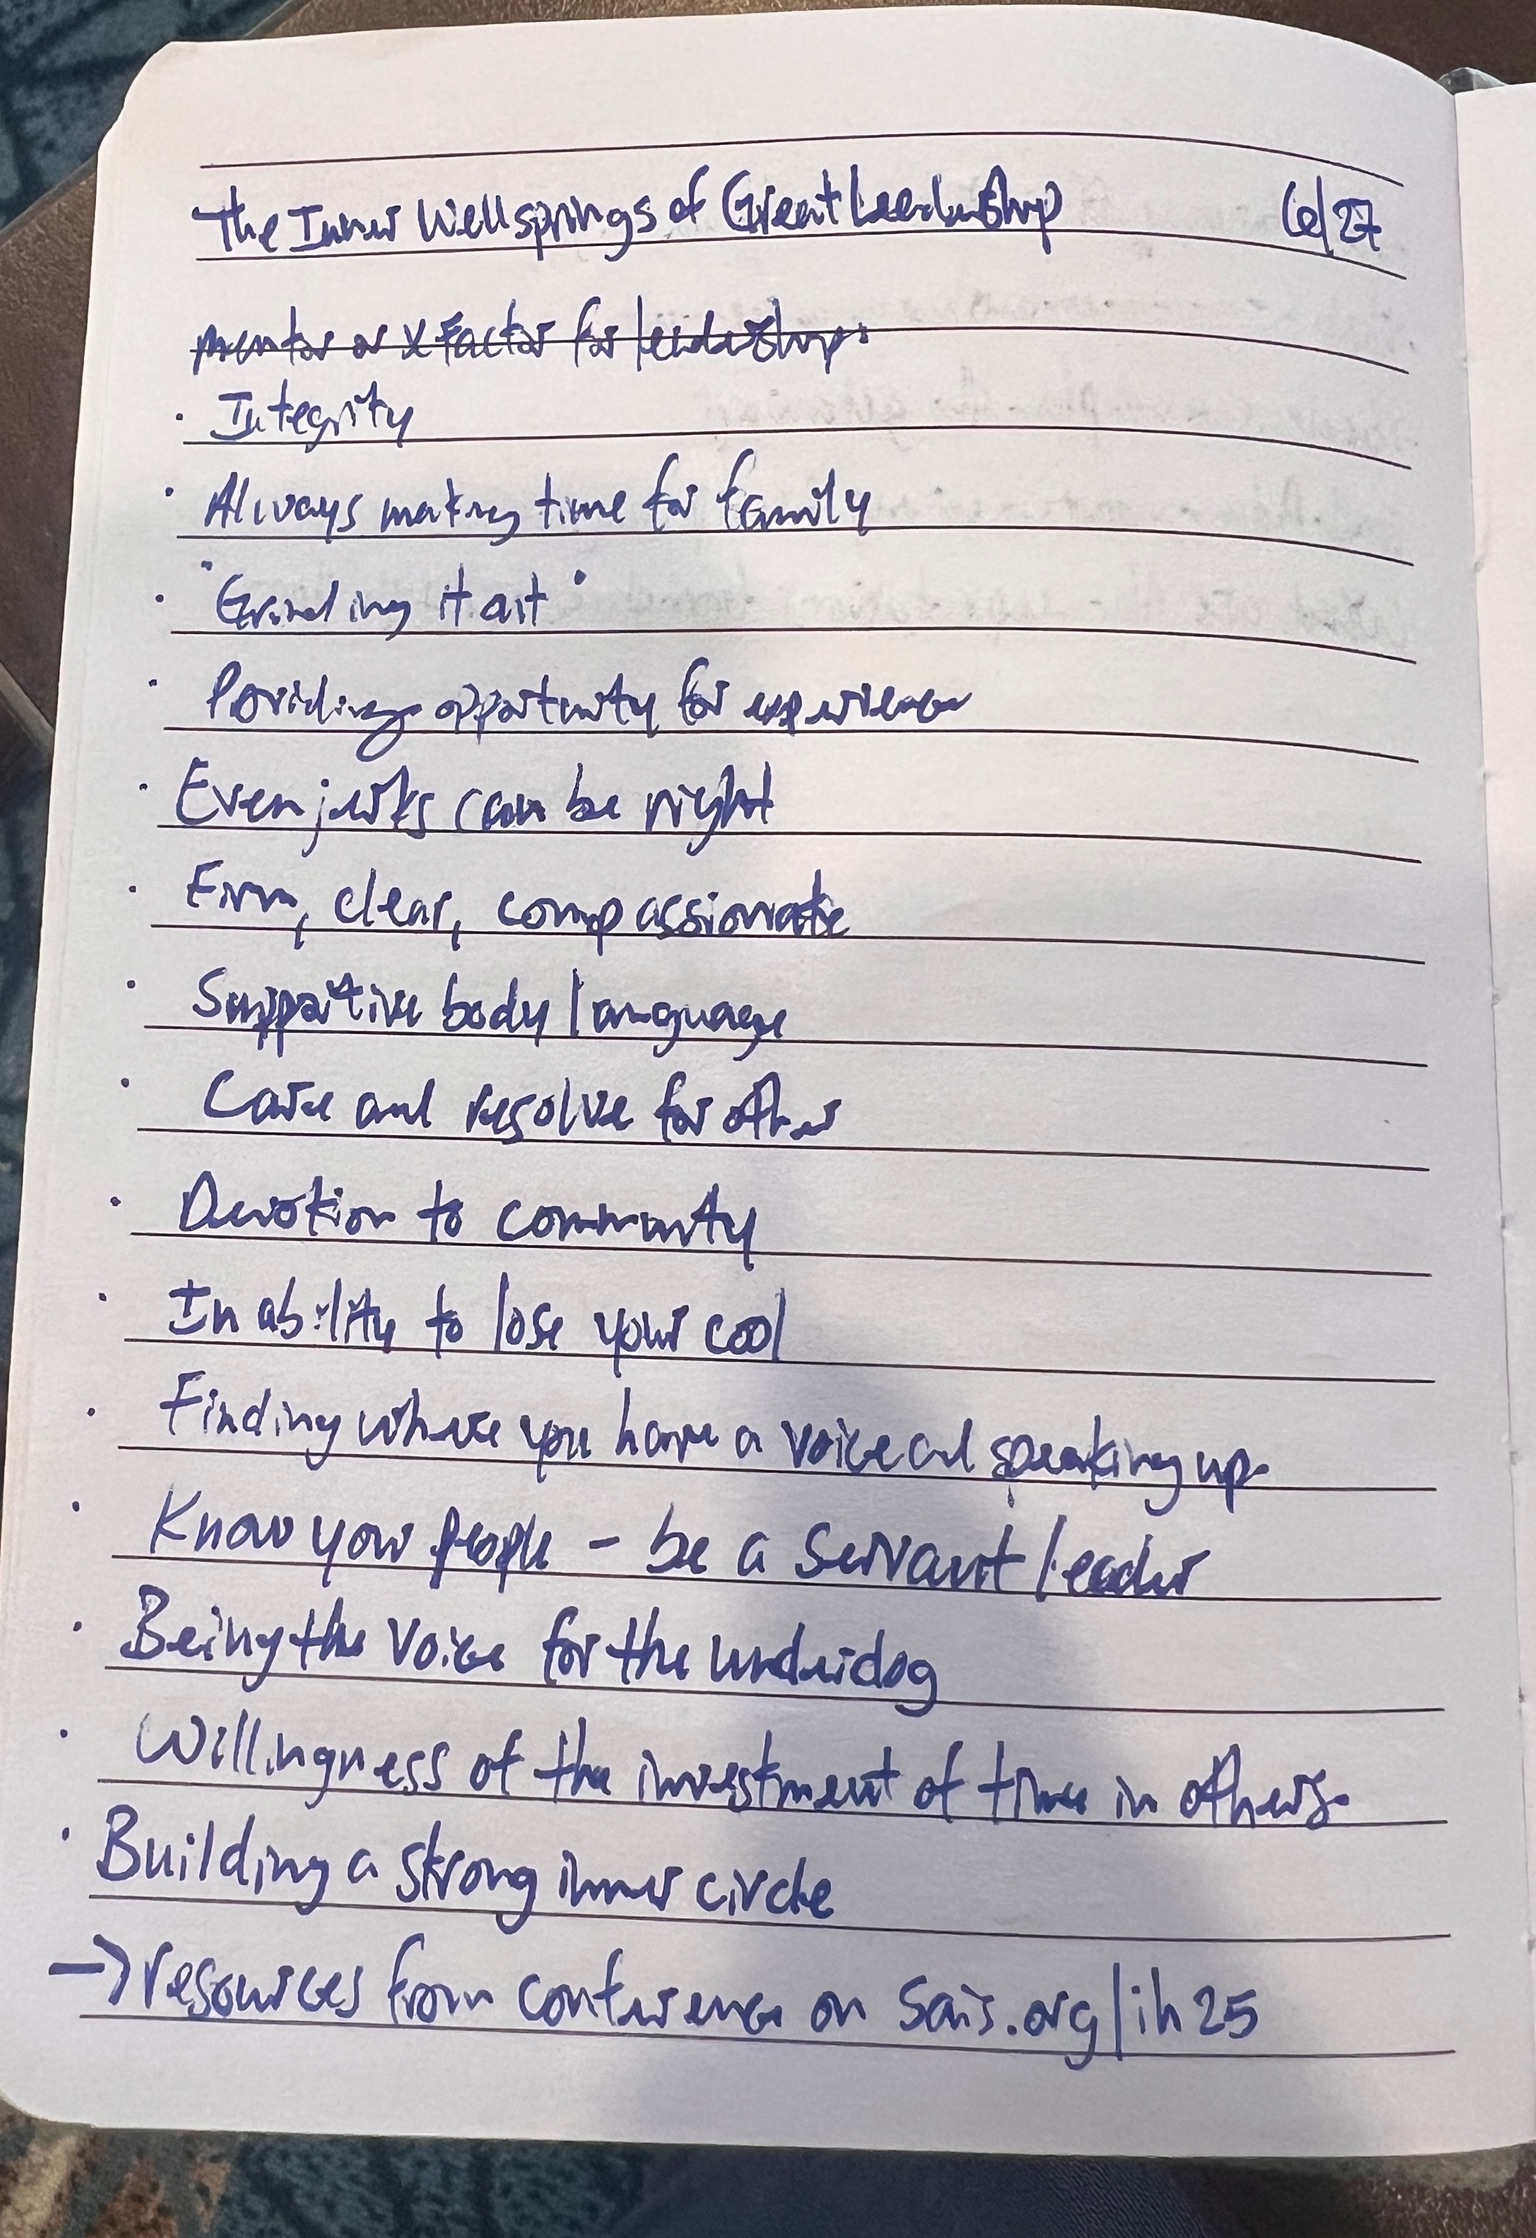 The Inner Wellsprings of Great Leadership 6/27
mentor or X Factor for leadership:
· Integrity
· Always making time for family
· "Grinding it out"
· Providing opportunity for experience
· Even jerks can be right
· Firm, clear, compassionate
· Supportive body language
· Care and resolve for other
· Devotion to community
· Inability to lose your cool
· Finding where you have a voice and speaking up.
· Know your people - be a servant leader
· Being the voice for the underdog
· Willingness of the investment of time in others.
· Building a strong inner circle
→ resources from conference on sais.org/ih25